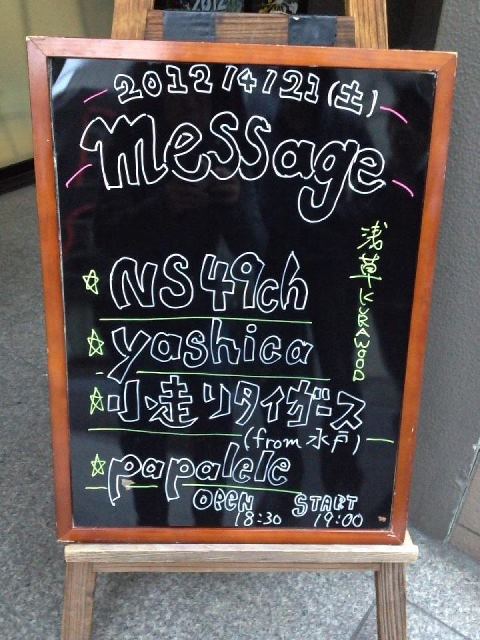 2012/4/21(土)
message
浅草KURAWOOD
☆NS49ch
☆yashica
☆小走りタイガース
(from 水戸)
☆papalele
OPEN START
18:30 19:00